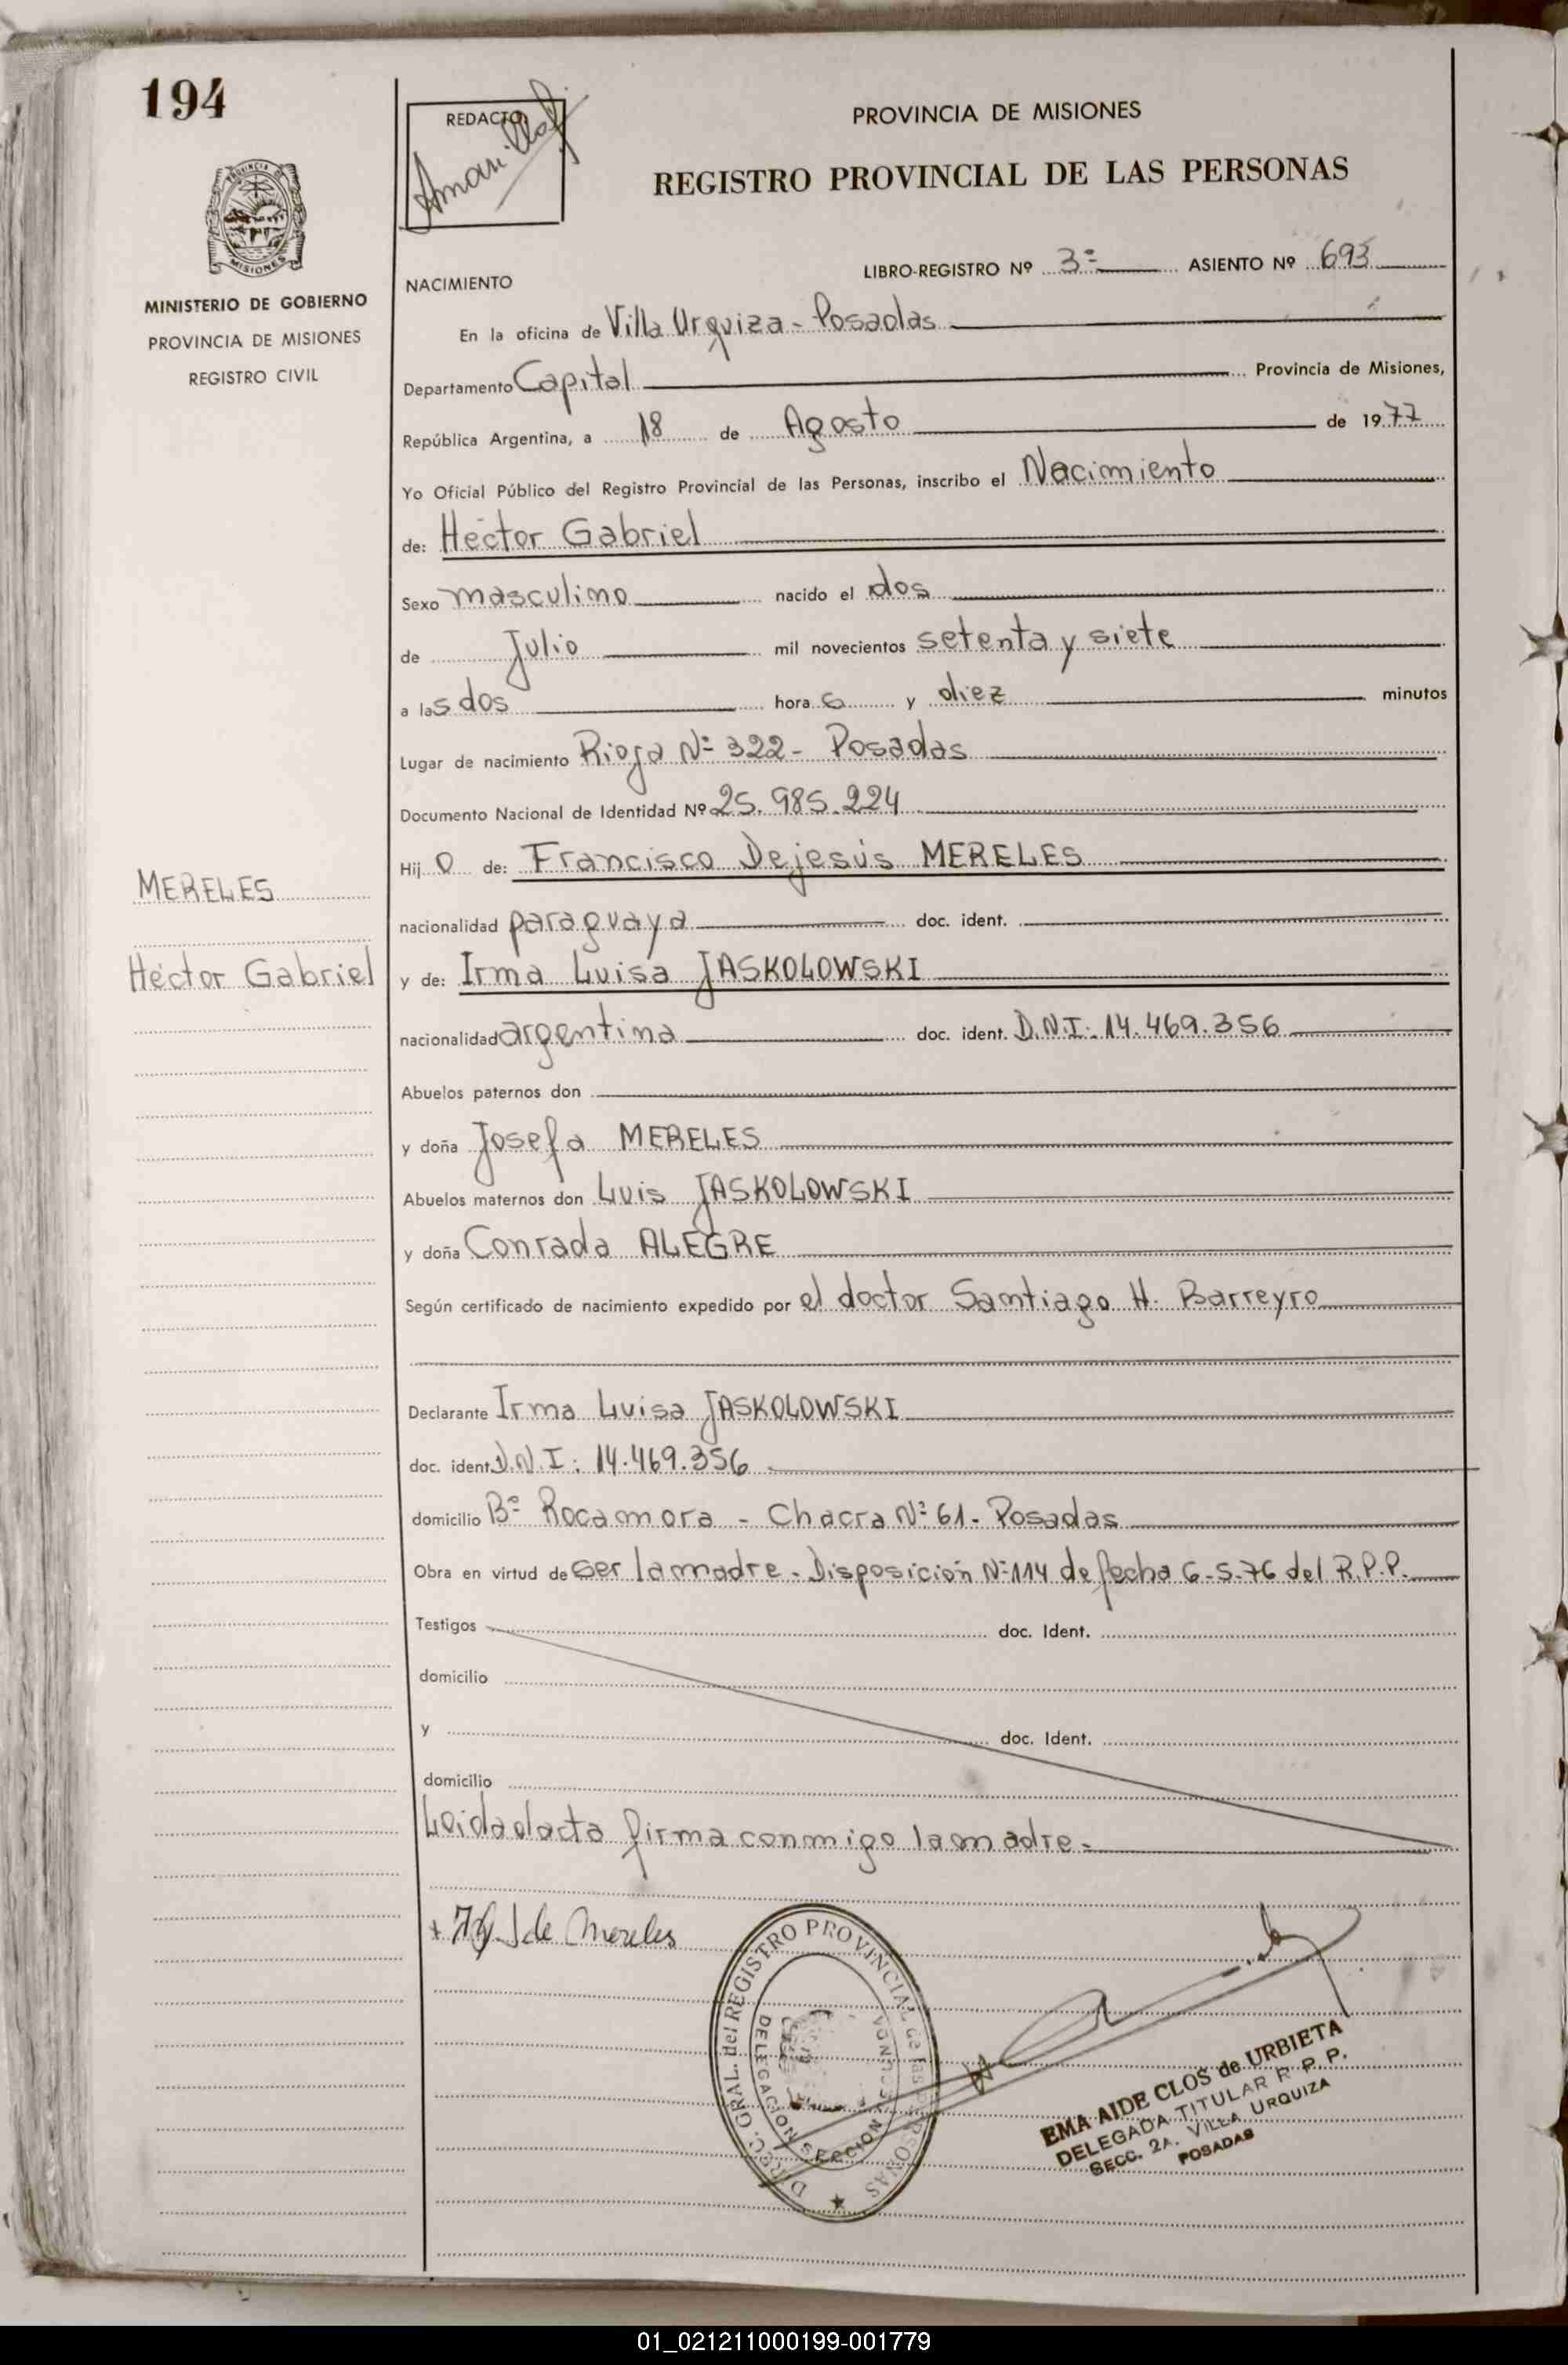 194
REDACTO
PROVINCIA DE MISIONES
REGISTRO PROVINCIAL DE LAS PERSONAS
PROVINCIA DE
MISIONES
MINISTERIO DE GOBIERNO
PROVINCIA DE MISIONES
REGISTRO CIVIL
LIBRO-REGISTRO Nº 3º ASIENTO Nº 693
NACIMIENTO
En la oficina de Villa Urquiza - Posadas
Departamento Capital Provincia de Misiones,
República Argentina, a 18 de Agosto de 1977
Yo Oficial Público del Registro Provincial de las Personas, inscribo el Nacimiento
de: Héctor Gabriel
Sexo masculino nacido el dos
de Julio mil novecientos setenta y siete
a las dos horas y diez minutos
Lugar de nacimiento Rioja Nº 322 - Posadas
Documento Nacional de Identidad Nº 25.985.224
Hijo de: Francisco Dejesús MERELES
MERELES
nacionalidad paraguaya doc. ident.
Héctor Gabriel
y de: Irma Luisa JASKOLOWSKI
nacionalidad argentina doc. ident. D.N.I: 14.469.356
Abuelos paternos don
y doña Josefa MERELES
Abuelos maternos don Luis JASKOLOWSKI
y doña Conrada ALEGRE
Según certificado de nacimiento expedido por el doctor Santiago H. Barreyro
Declarante Irma Luisa JASKOLOWSKI
doc. ident. D.N.I: 14.469.356
domicilio Bº Rocamora - Chacra Nº 61 - Posadas
Obra en virtud de ser la madre - Disposición Nº 114 de fecha 6-5-76 del R.P.P.
Testigos doc. Ident.
domicilio
y doc. Ident.
domicilio
Leida el acta firma conmigo la madre -
J de Mereles
DIREC. GRAL. del REGISTRO PROVINCIAL de las PERSONAS
DELEGACION SECCION SEGUNDA
EMA AIDE CLOS de URBIETA
DELEGADA TITULAR R P. P.
SECC. 2A. VILLA URQUIZA
POSADAS
01_021211000199-001779